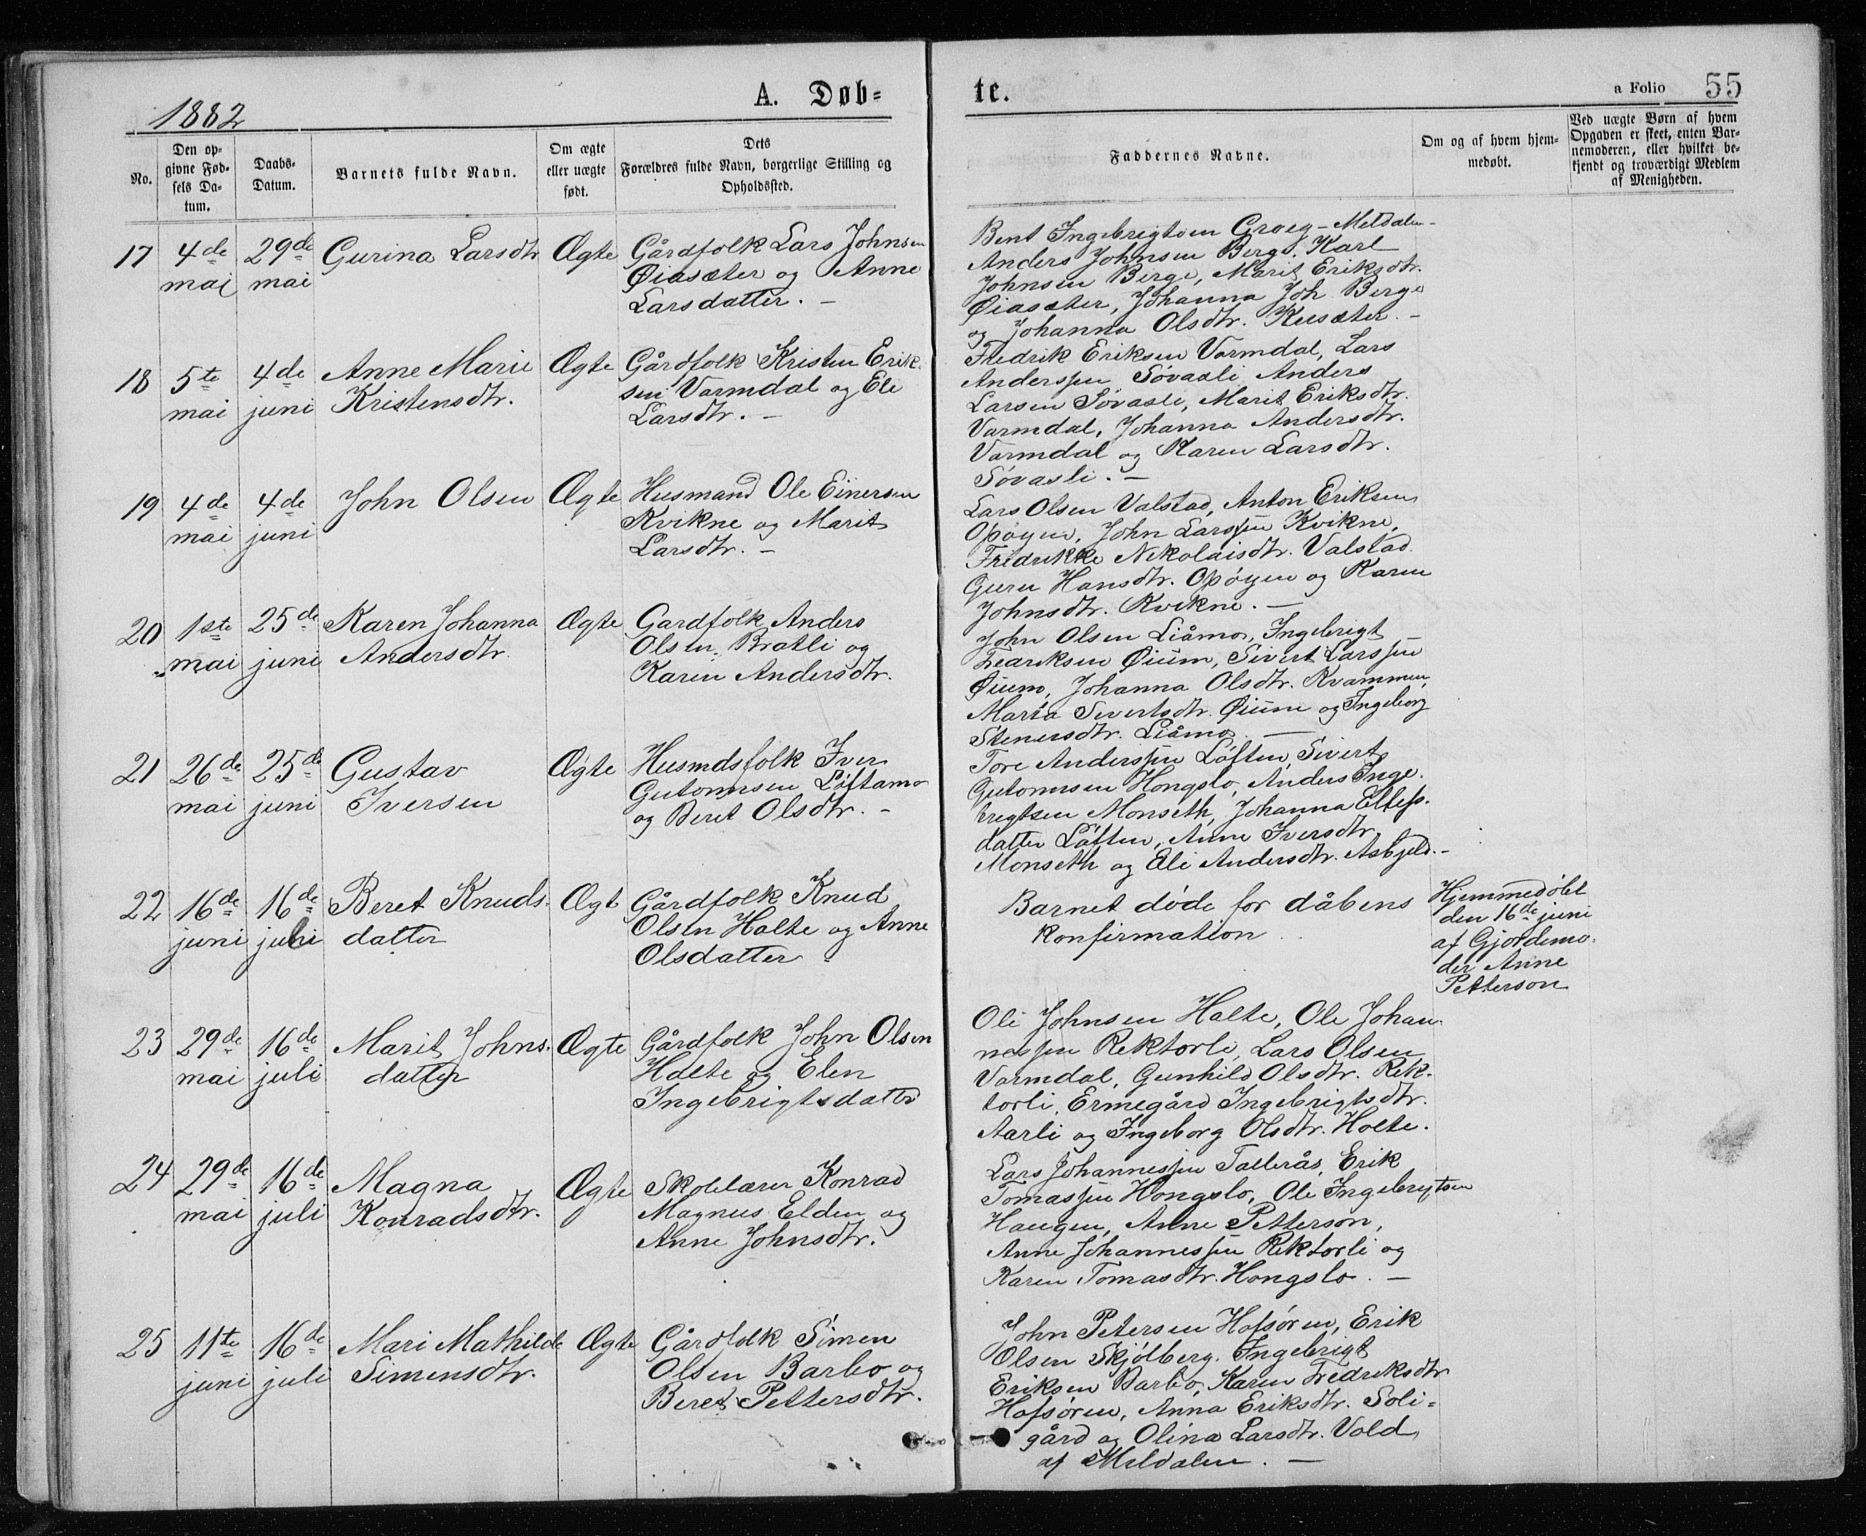 1882
A. Døb=
te.
a Folio 55
No.
Den op-
givne Fød-
sels Da-
tum.
Daabs-
Datum.
Barnets fulde Navn.
Om ægte
eller uægte
født.
Dets
Forældres fulde Navn, borgerlige Stilling og
Opholdssted.
Faddernes Navne.
Om og af hvem hjem-
medøbt.
Ved uægte Børn af hvem
Opgaven er skeet, enten Bar-
nemoderen, eller hvilket be-
kjendt og troværdigt Medlem
af Menigheden.
17
4de
mai
29de
mai
Gurina Larsdtr
Ægte
Gårdfolk Lars Johnsen
Øiasæter og Anne
Larsdatter. -
Bent Ingebrigtsen Groeg - Meldalen-
Anders Johnsen Berge. Karl
Johnsen Berge, Marit Eriksdtr.
Øiasæter, Johanna Joh. Berge
og Johanna Olsdtr. Kusæter. -
18
5te
mai
4de
juni
Anne Marie
Kristensdtr.
Ægte
Gårdfolk Kristen Erik-
sen Varmdal og Eli
Larsdtr. -
Fredrik Eriksen Varmdal, Lars
Anderssen Søvasli Anders
Larsen Søvasli, Marit Eriksdtr.
Varmdal, Johanna Andersdtr.
Varmdal og Karen Larsdtr.
Søvasli. -
19
4de
mai
4de
juni
John Olsen
Ægte
Husmand Ole Einersen
Kvikne og Marit
Larsdtr. -
Lars Olsen Valstad, Anton Eriksen
Opøyen, John Larssen Kvikne,
Fredrikke Nikolaisdtr. Valstad
Guru Hansdtr. Opøyen og Karen
Johnsdtr. Kvikne. -
20
1ste
mai
25de
juni
Karen Johanna
Andersdtr.
Ægte
Gardfolk Anders
Olsen Bratli og
Karen Andersdtr.
John Olsen Liåmo, Ingebrigt
Fedriksen Øium, Sivert Larssen
Øium, Johanna Olsdtr. Kvammen,
Marta Severtsdtr. Øium og Ingeborg
Stenersdtr. Liåmo. -
21
26de
mai
25de
juni
Gustav
Iversen
Ægte
Husmdsfolk Iver
Gutormsen Løftamo
og Beret Olsdtr. -
Tore Anderssen Løften, Sivert
Gutormsen Hongslo, Anders Inge-
brigtsen Monseth, Johanna Ellefs-
datter Løften, Anne Iversdtr.
Monseth og Eli Andersdtr. Asbjeld. -
22
16de
juni
16de
juli
Beret Knuds-
datter
Ægt
Gårdfolk Knud
Olsen Holte og Anne
Olsdatter
Barnet døde før dåbens
konfirmation
Hjemmedøbt
den 16de juni
af Gjordemo-
der Anne
Petterson
23
29de
mai
16de
juli
Marit Johns-
datter
Ægte
Gårdfolk John Olsen
Holte og Elen
Ingebrigtsdatter
Oli Johnsen Holte, Ole Johan-
nessen Rektorli, Lars Olsen
Varmdal, Gunhild Olsdtr. Rek-
torli, Ermegård Ingebrigtsdtr.
Aarli og Ingeborg Olsdtr. Holte.
24
29de
mai
16de
juli
Magna
Konradsdtr.
Ægte
Skolelærer Konrad
Magnus Elden og
Anne Johnsdtr.
Lars Johannessen Tallerås, Erik
Tomassen Hongslo, Ole Ingebrigtsen
Haugen, Anne Petterson,
Anne Johannessen Rektorli og
Karen Tomasdtr. Hongslo. -
25
11te
juni
16de
juli
Mari Mathilde
Simensdtr.
Ægte
Gårdfolk Simen
Olsen Barbo og
Beret Pettersdtr.
John Petersen Hofsøren, Erik
Olsen Skjølberg. Ingebrigt
Eriksen Barbo, Karen Fredriksdtr
Hofsøren, Anna Eriksdtr. Soli-
gård og Olina Larsdtr. Vold
af Meldalen. -